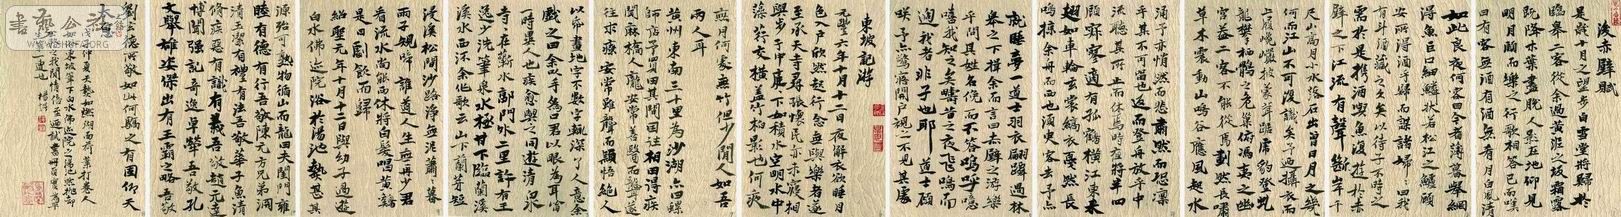 後赤壁賦
是歲十月之望步自雪堂將歸於
臨皋二客從余過黃泥之坂霜露
既降木葉盡脫人影在地仰見
明月顧而樂之行歌相答已而嘆
曰有客無酒有酒無肴月白風清
如此良夜何客曰今者薄暮舉網
得魚巨口細鱗狀若松江之鱸顧
安所得酒乎歸而謀諸婦婦曰我
有斗酒藏之久矣以待子不時之
需於是攜酒與魚復遊於赤
壁之下江流有聲斷岸千
尺山高月小水落石出曾日月之幾
何而江山不可復識矣予乃攝衣
而上履巉巖披蒙茸踞虎豹登虬
龍攀栖鶻之危巢俯馮夷之幽
宮蓋二客不能從焉劃然長嘯
草木震動山鳴谷應風起水
涌予亦悄然而悲肅然而恐凜
乎其不可留也反而登舟放乎中
流聽其所止而休焉時夜將半四
顧寂寥適有孤鶴橫江東來
翅如車輪玄裳縞衣戛然長
鳴掠余舟而西也須臾客去予亦
就睡夢一道士羽衣翩躚過林
皋之下揖余而言曰赤壁之遊樂
乎問其姓名俛而不答嗚呼噫
嘻我知之矣疇昔之夜飛鳴而
過我者非子也耶道士顧
笑予亦驚寤開戶視之不見其處
東坡記游
元豐六年十月十二日夜解衣欲睡月
色入戶欣然起行念無與樂者遂
至承天寺尋張懷民亦未寢相
與步于中庭庭下如積水空明水中
藻荇交橫蓋竹柏影也何夜
無月何處無竹但少閒人如吾
兩人耳
黃州東南三十里為沙湖亦曰螺
師店予買田其間因往相田得疾
聞麻橋人龐安常善醫而聾遂
往求療安常雖聾而穎悟絕人
以紙畫地字不數字輒深了人意余
戲之曰余以手為口君以眼為耳皆
一時異人也疾愈與之同遊清泉
寺在蘄水郭門外二里許有王
逸少洗筆泉水極甘下臨蘭溪
溪水西流余作歌云山下蘭芽短
浸溪松間沙路淨無泥蕭蕭暮
雨子規啼誰道人生無再少君
看流水尚能西休將白髮唱黃雞
是日劇飲而歸
紹聖元年十月十二日與幼子過遊
白水佛迹院浴於湯池熱甚其
源殆可熟物循山而龍田夫閨門雍
睦有德有行吾敬陳元方兄弟淵
清玉潔有禮有法吾敬華子魚清
修疾惡有識有義吾敬趙元達
博聞強記奇逸卓犖吾敬孔
文舉雄姿傑出有王霸略吾敬
劉玄德所敬如此何驕之有